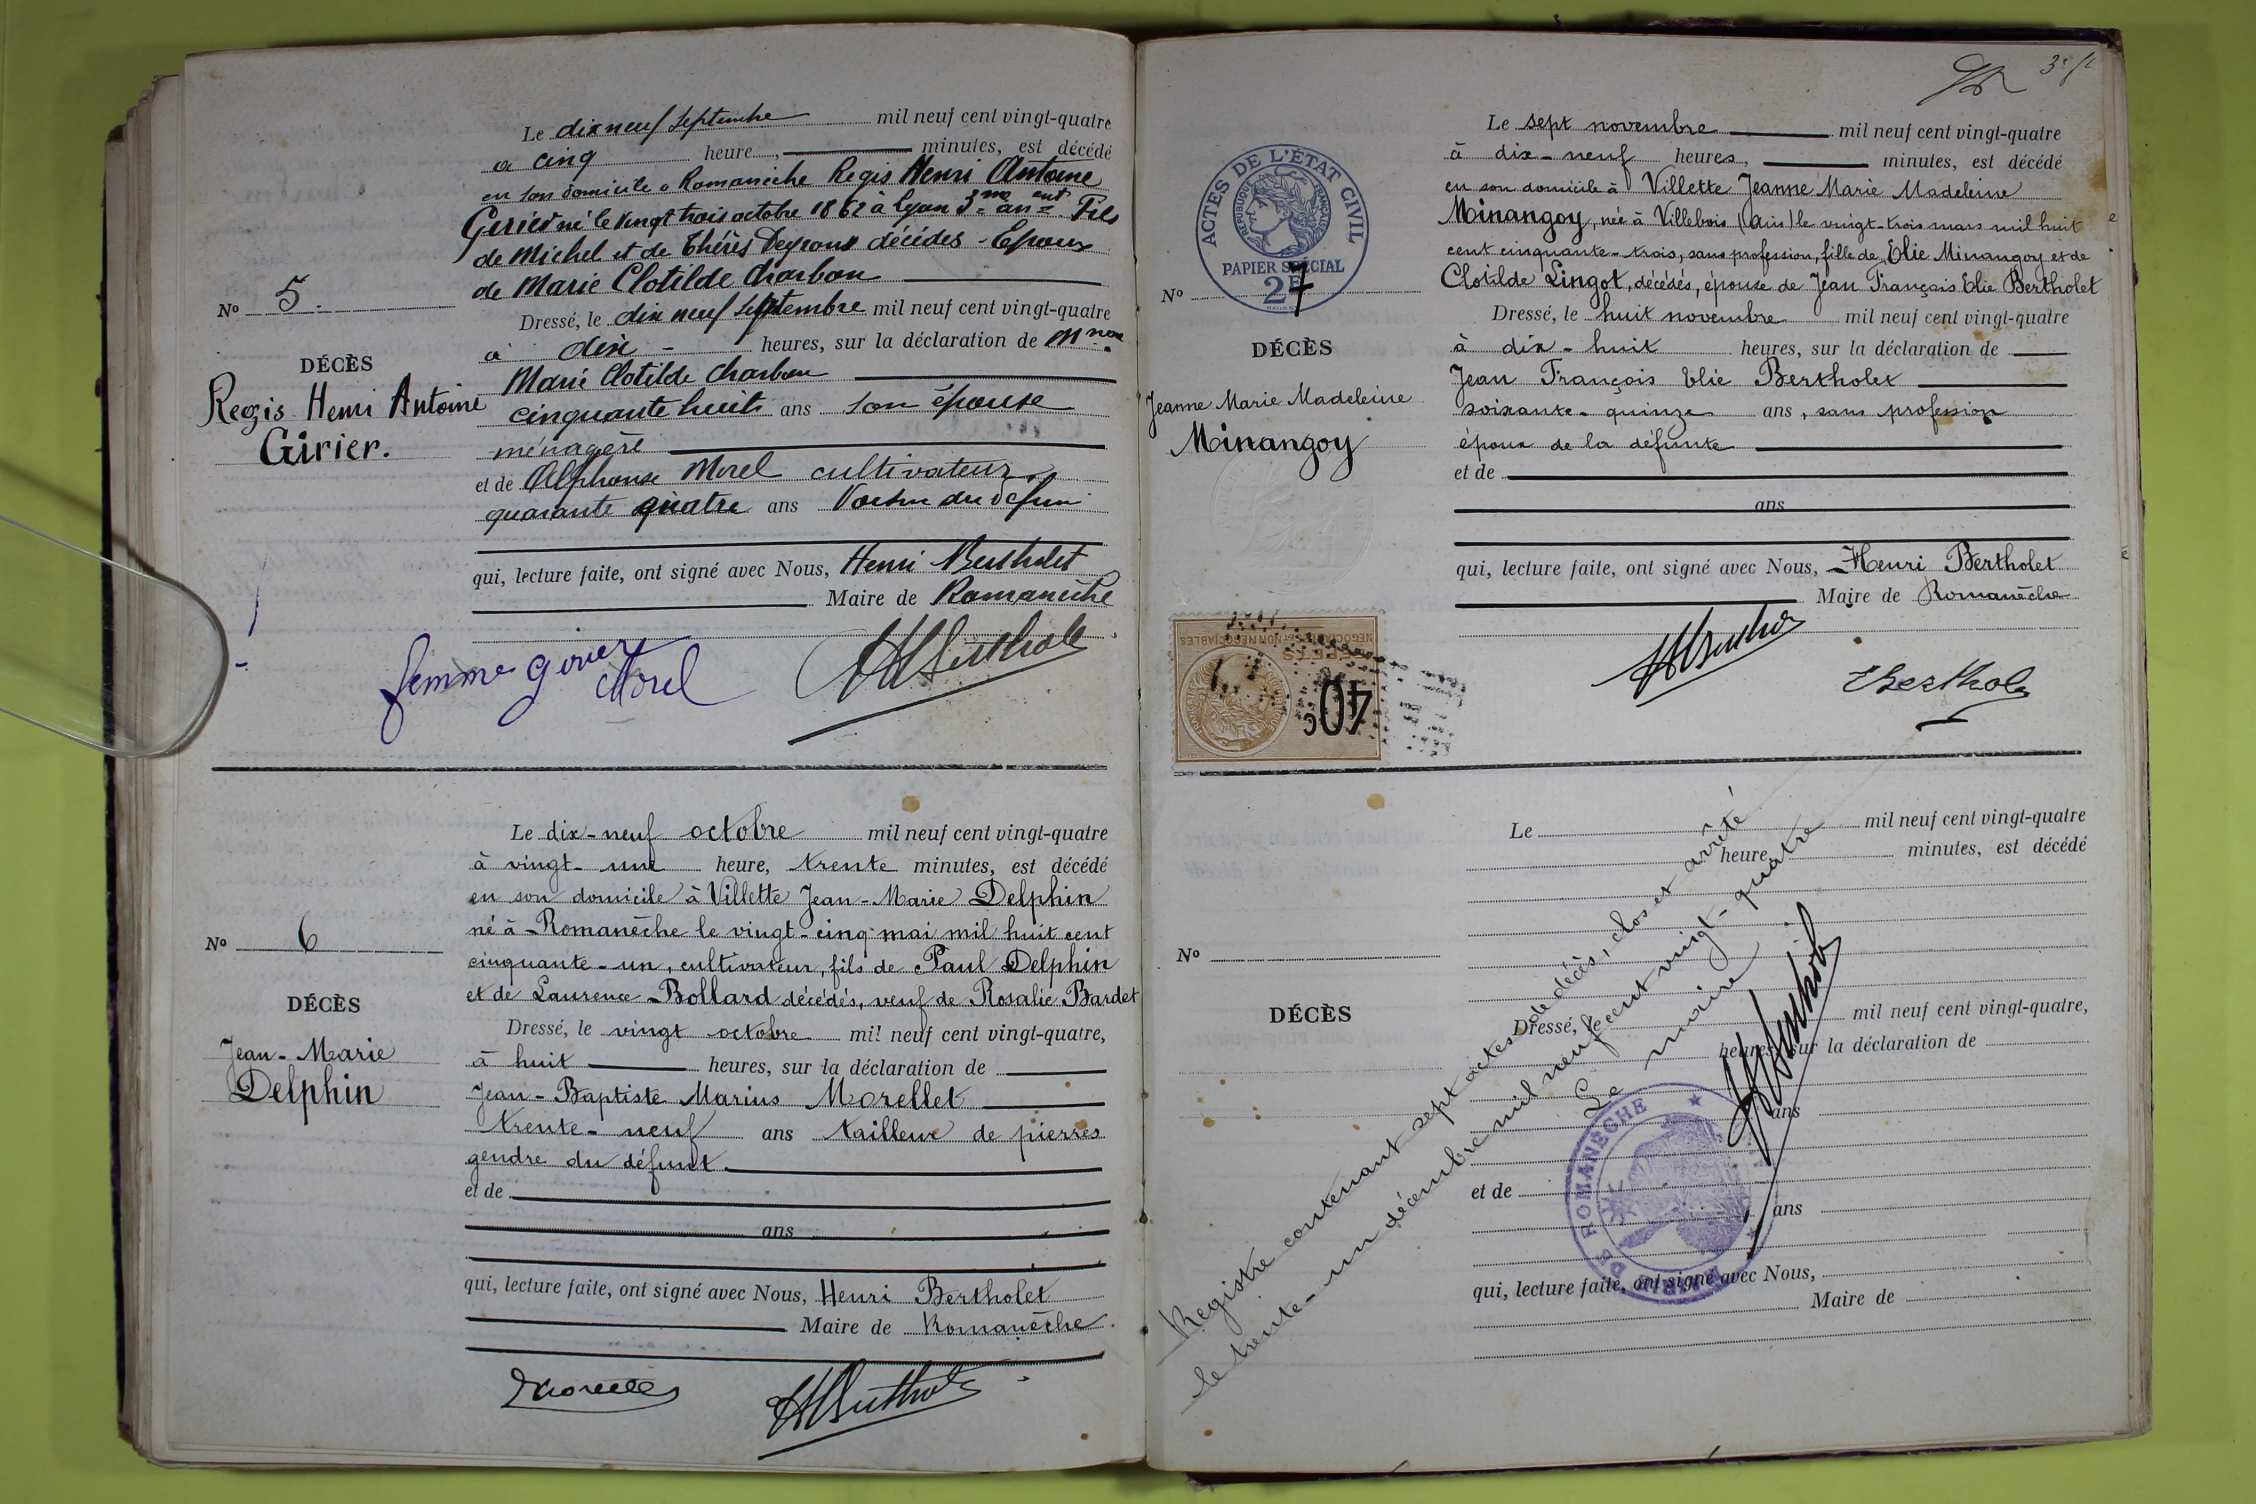 Le dix neuf septembre mil neuf cent vingt-quatre
a cinq heure, minutes, est décédé
en son domicile a Romanèche Regis Henri Antoine
Girier né le vingt trois octobre 1862 à Lyon 3me an ent Fils
de Michel et de Thérès décédés - Epoux
de Marie Clotilde Charbon
No 5.
Dressé, le dix neuf septembre mil neuf cent vingt-quatre
a dix - heures, sur la déclaration de
DÉCÈS
Regis Henri Antoine
Girier.
Marie Clotilde Charbon
cinquante huit ans son épouse
ménagère
et de Alphonse Morel cultivateur
quarante quatre ans Voisin du défun
qui, lecture faite, ont signé avec Nous, Henri Bertholet
Maire de Romanèche
femme girier
Morel
HBerthole
Le dix-neuf octobre mil neuf cent vingt-quatre
à vingt-une heure, trente minutes, est décédé
en son domicile à Villette Jean-Marie Delphin
né à Romanèche le vingt-cinq mai mil huit cent
cinquante-un, cultivateur, fils de Paul Delphin
et de Laurence Bollard décédés, veuf de Rosalie Bardet
No 6
DÉCÈS
Jean-Marie
Delphin
Dressé, le vingt octobre mil neuf cent vingt-quatre,
à huit heures, sur la déclaration de
Jean-Baptiste Marius Morellet
trente-neuf ans tailleur de pierres
gendre du défunt.
et de
ans
qui, lecture faite, ont signé avec Nous, Henri Bertholet
Maire de Romanèche.
HBerthole
3e
ACTES DE L'ÉTAT CIVIL
RÉPUBLIQUE FRANÇAISE
PAPIER SPÉCIAL
2F
Le sept novembre mil neuf cent vingt-quatre
à dix-neuf heures, minutes, est décédé
en son domicile à Villette Jeanne Marie Madeleine
Minangoy, née à Villebois (Ain) le vingt-trois mars mil huit
cent cinquante-trois, sans profession, fille de Elie Minangoy et de
Clotilde Lingot, décédés, épouse de Jean François Elie Bertholet
No 7
DÉCÈS
Jeanne Marie Madeleine
Minangoy
Dressé, le huit novembre mil neuf cent vingt-quatre
à dix-huit heures, sur la déclaration de
Jean François Elie Bertholet
soixante-quinze ans, sans profession
époux de la défunte
et de
ans
qui, lecture faite, ont signé avec Nous, Henri Bertholet
Maire de Romanèche
40c
NÉGOCIABLES ET NON NÉGOCIABLES
HBerthole
EBertholet
Le mil neuf cent vingt-quatre
heure minutes, est décédé
No
DÉCÈS
Dressé, le mil neuf cent vingt-quatre,
heures, sur la déclaration de
ans
et de
ans
qui, lecture faite, ont signé avec Nous,
Maire de
Registre contenant sept actes de décès, clos et arrêté
le trente-un décembre mil neuf cent vingt-quatre
Le maire
HBerthole
MAIRIE DE ROMANÈCHE